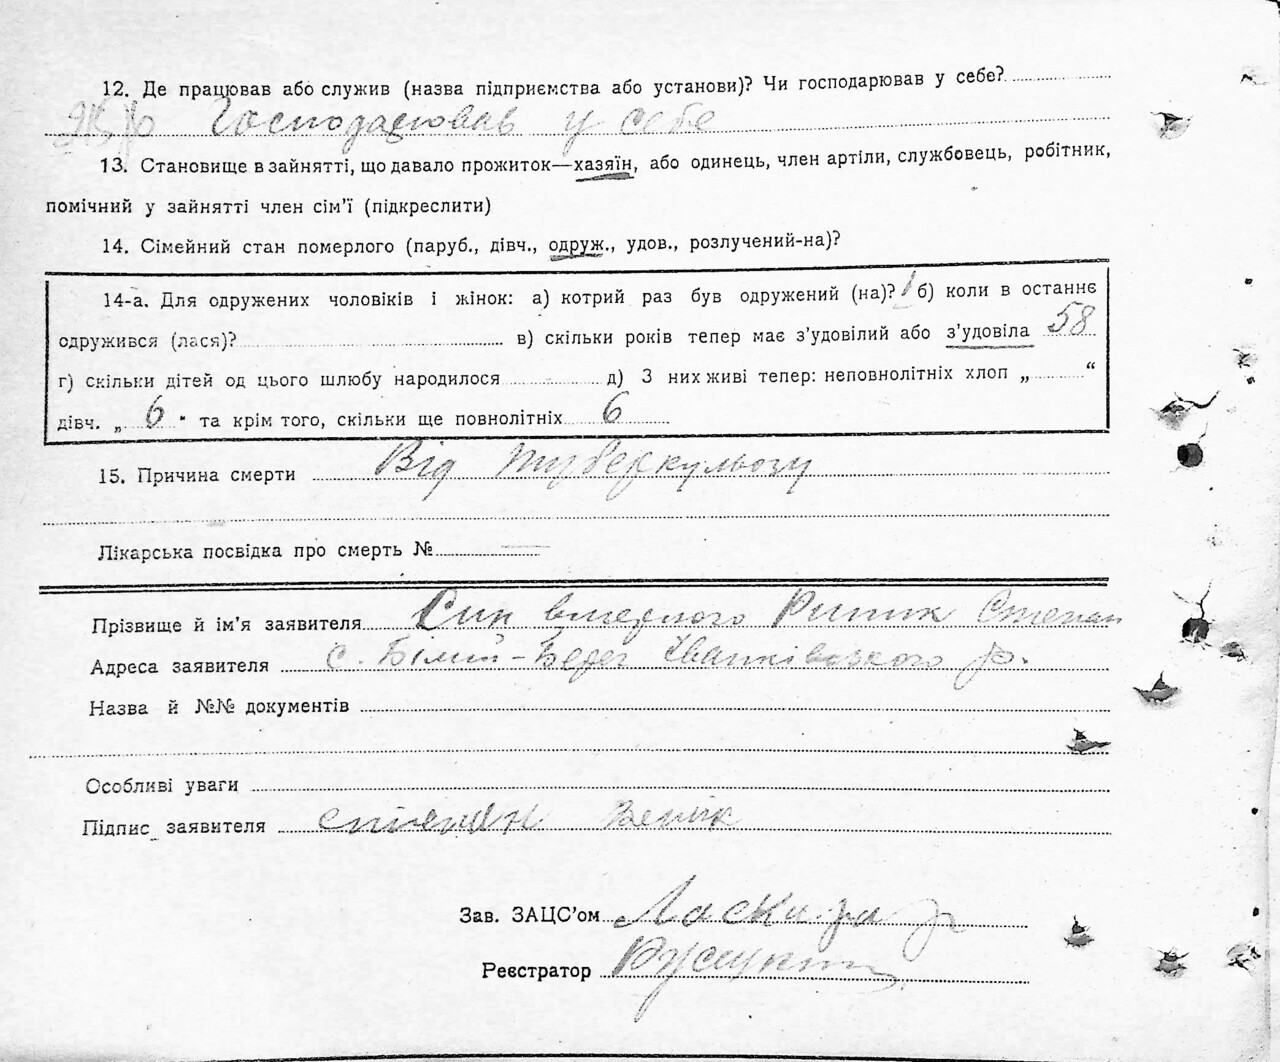 12. Де працював або служив (назва підприємства або установи)? Чи господарював у себе?
Господарював у себе
13. Становище в зайнятті, що давало прожиток—хазяїн, або одинець, член артіли, службовець, робітник,
помічний у зайнятті член сім'ї (підкреслити)
14. Сімейний стан померлого (паруб., дівч., одруж., удов., розлучений-на)?
14-а. Для одружених чоловіків і жінок: а) котрий раз був одружений (на)? 1 б) коли в останнє
одружився (лася)? в) скільки років тепер має з'удовілий або з'удовіла 58
г) скільки дітей од цього шлюбу народилося д) З них живі тепер: неповнолітніх хлоп „ “
дівч. „ 6 " та крім того, скільки ще повнолітніх 6
15. Причина смерти Від туберкульозу
Лікарська посвідка про смерть № —
Прізвище й ім'я заявителя Син вмерлого Степан
Адреса заявителя с. Білий-Берег Іванківського р.
Назва й №№ документів
Особливі уваги
Підпис заявителя степан
Зав. ЗАЦС'ом
Реєстратор